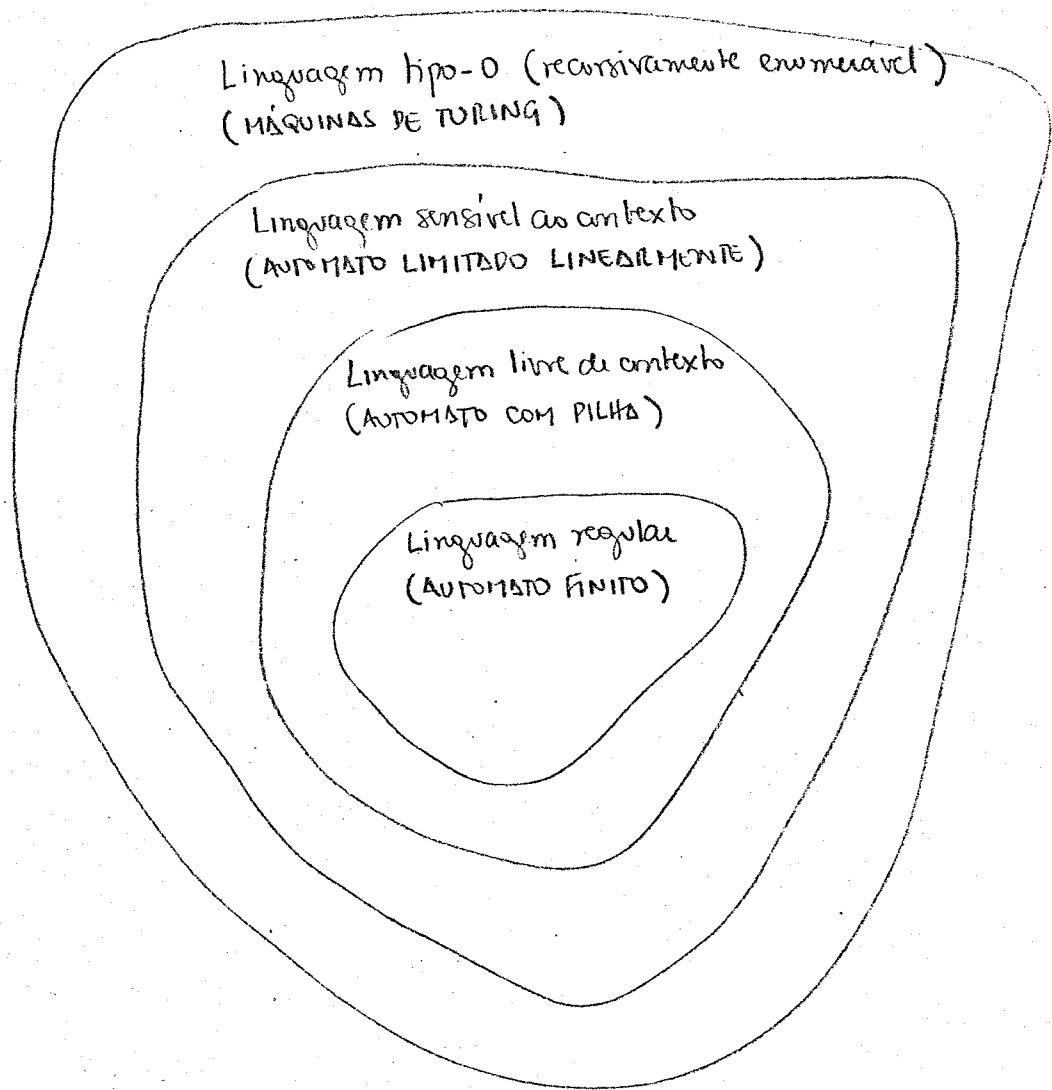 Linguagem tipo-0 (recursivamente enumerável)
(MÁQUINAS DE TURING)
Linguagem sensível ao contexto
(AUTOMATO LIMITADO LINEARMENTE)
Linguagem livre de contexto
(AUTOMATO COM PILHA)
Linguagem regular
(AUTOMATO FINITO)